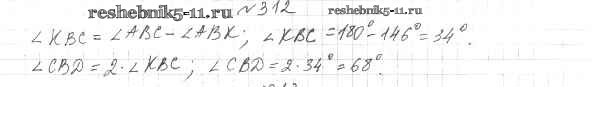 reshebnik5-11.ru №312 reshebnik5-11.ru
∠KBC = ∠ABC - ∠ABK; ∠KBC = 180° - 146° = 34°.
∠CBD = 2·∠KBC; ∠CBD = 2·34° = 68°.